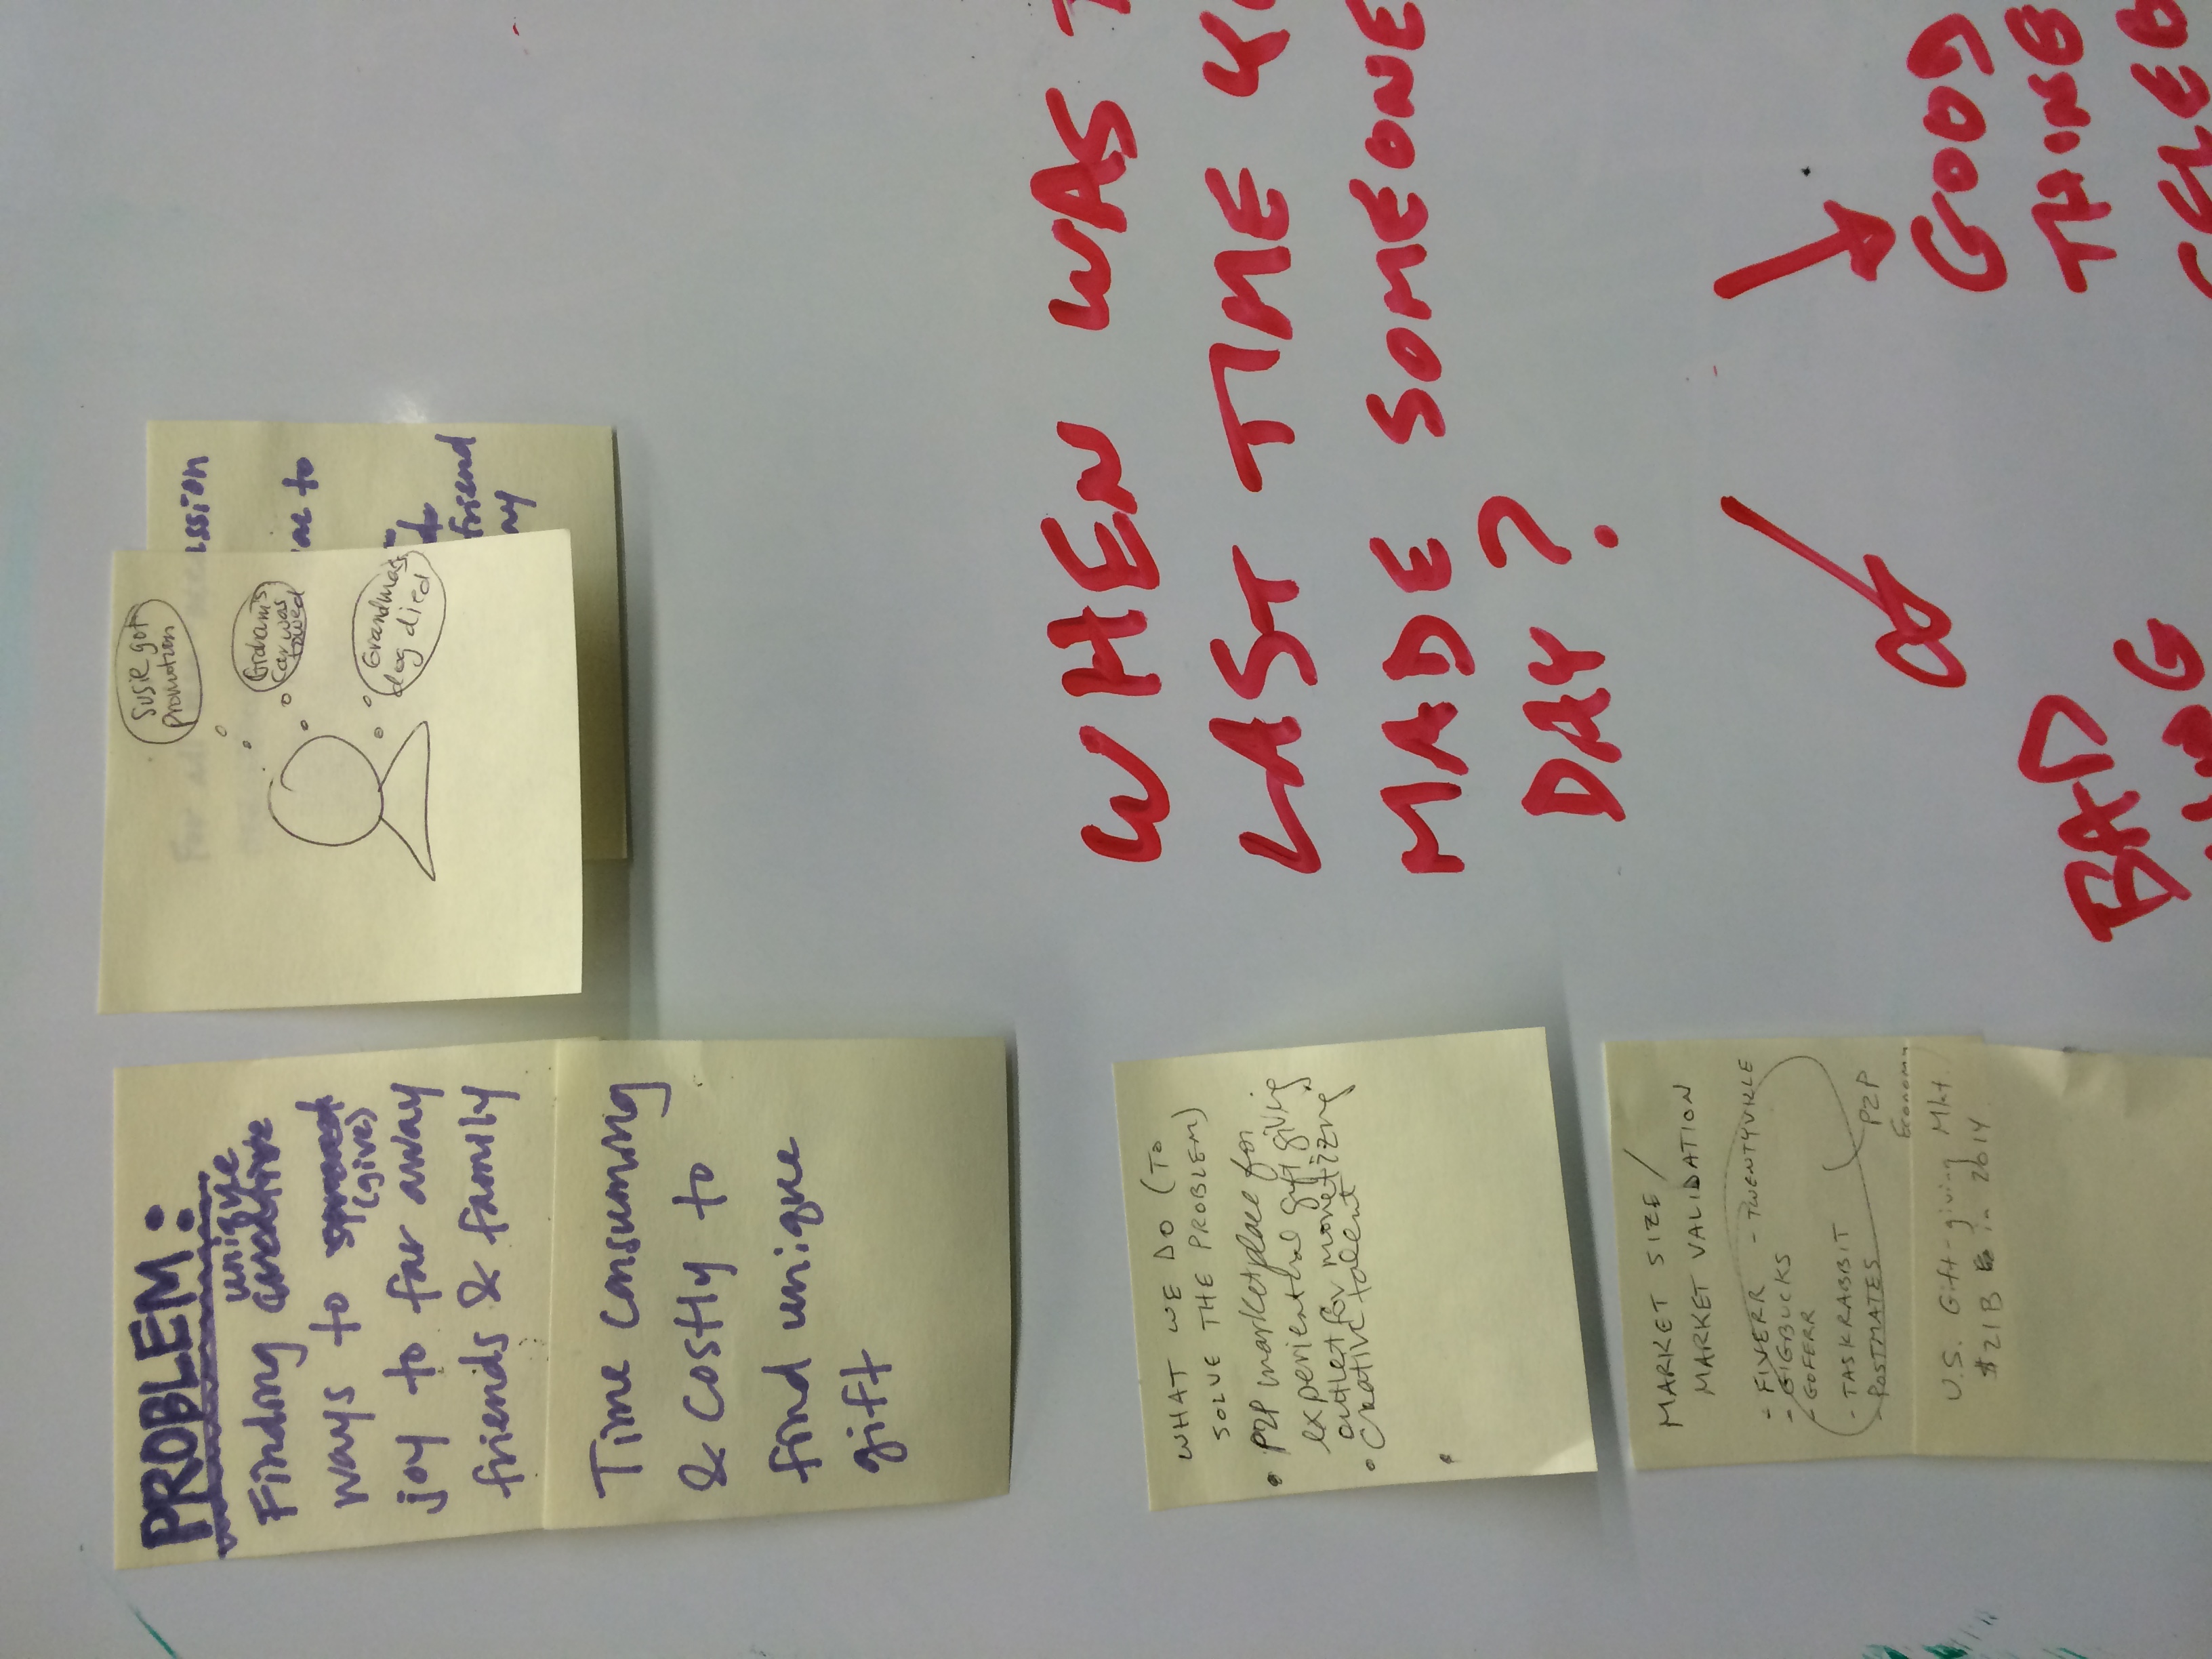 PROBLEM:
unique
Finding creative
ways to spread
(give)
joy to far away
friends & family
Time consuming
& costly to
find unique
gift
Susie got
promotion
Graham's
car was
towed
Grandma's
dog died
For all
friend
WHAT WE DO (TO
SOLVE THE PROBLEM)
• P2P marketplace for
experiential gift giving
outlet for monetizing
• creative talent
MARKET SIZE/
MARKET VALIDATION
- FIVERR - TWENTYVILLE
- GIGBUCKS
- GOFERR
- TASKRABBIT
- POSTMATES
P2P
Economy
U.S. Gift-giving Mkt
$21B in 2014
WHEN WAS T
LAST TIME YO
MADE SOMEONE
DAY?
BAD
GOOD
THING
CELEB